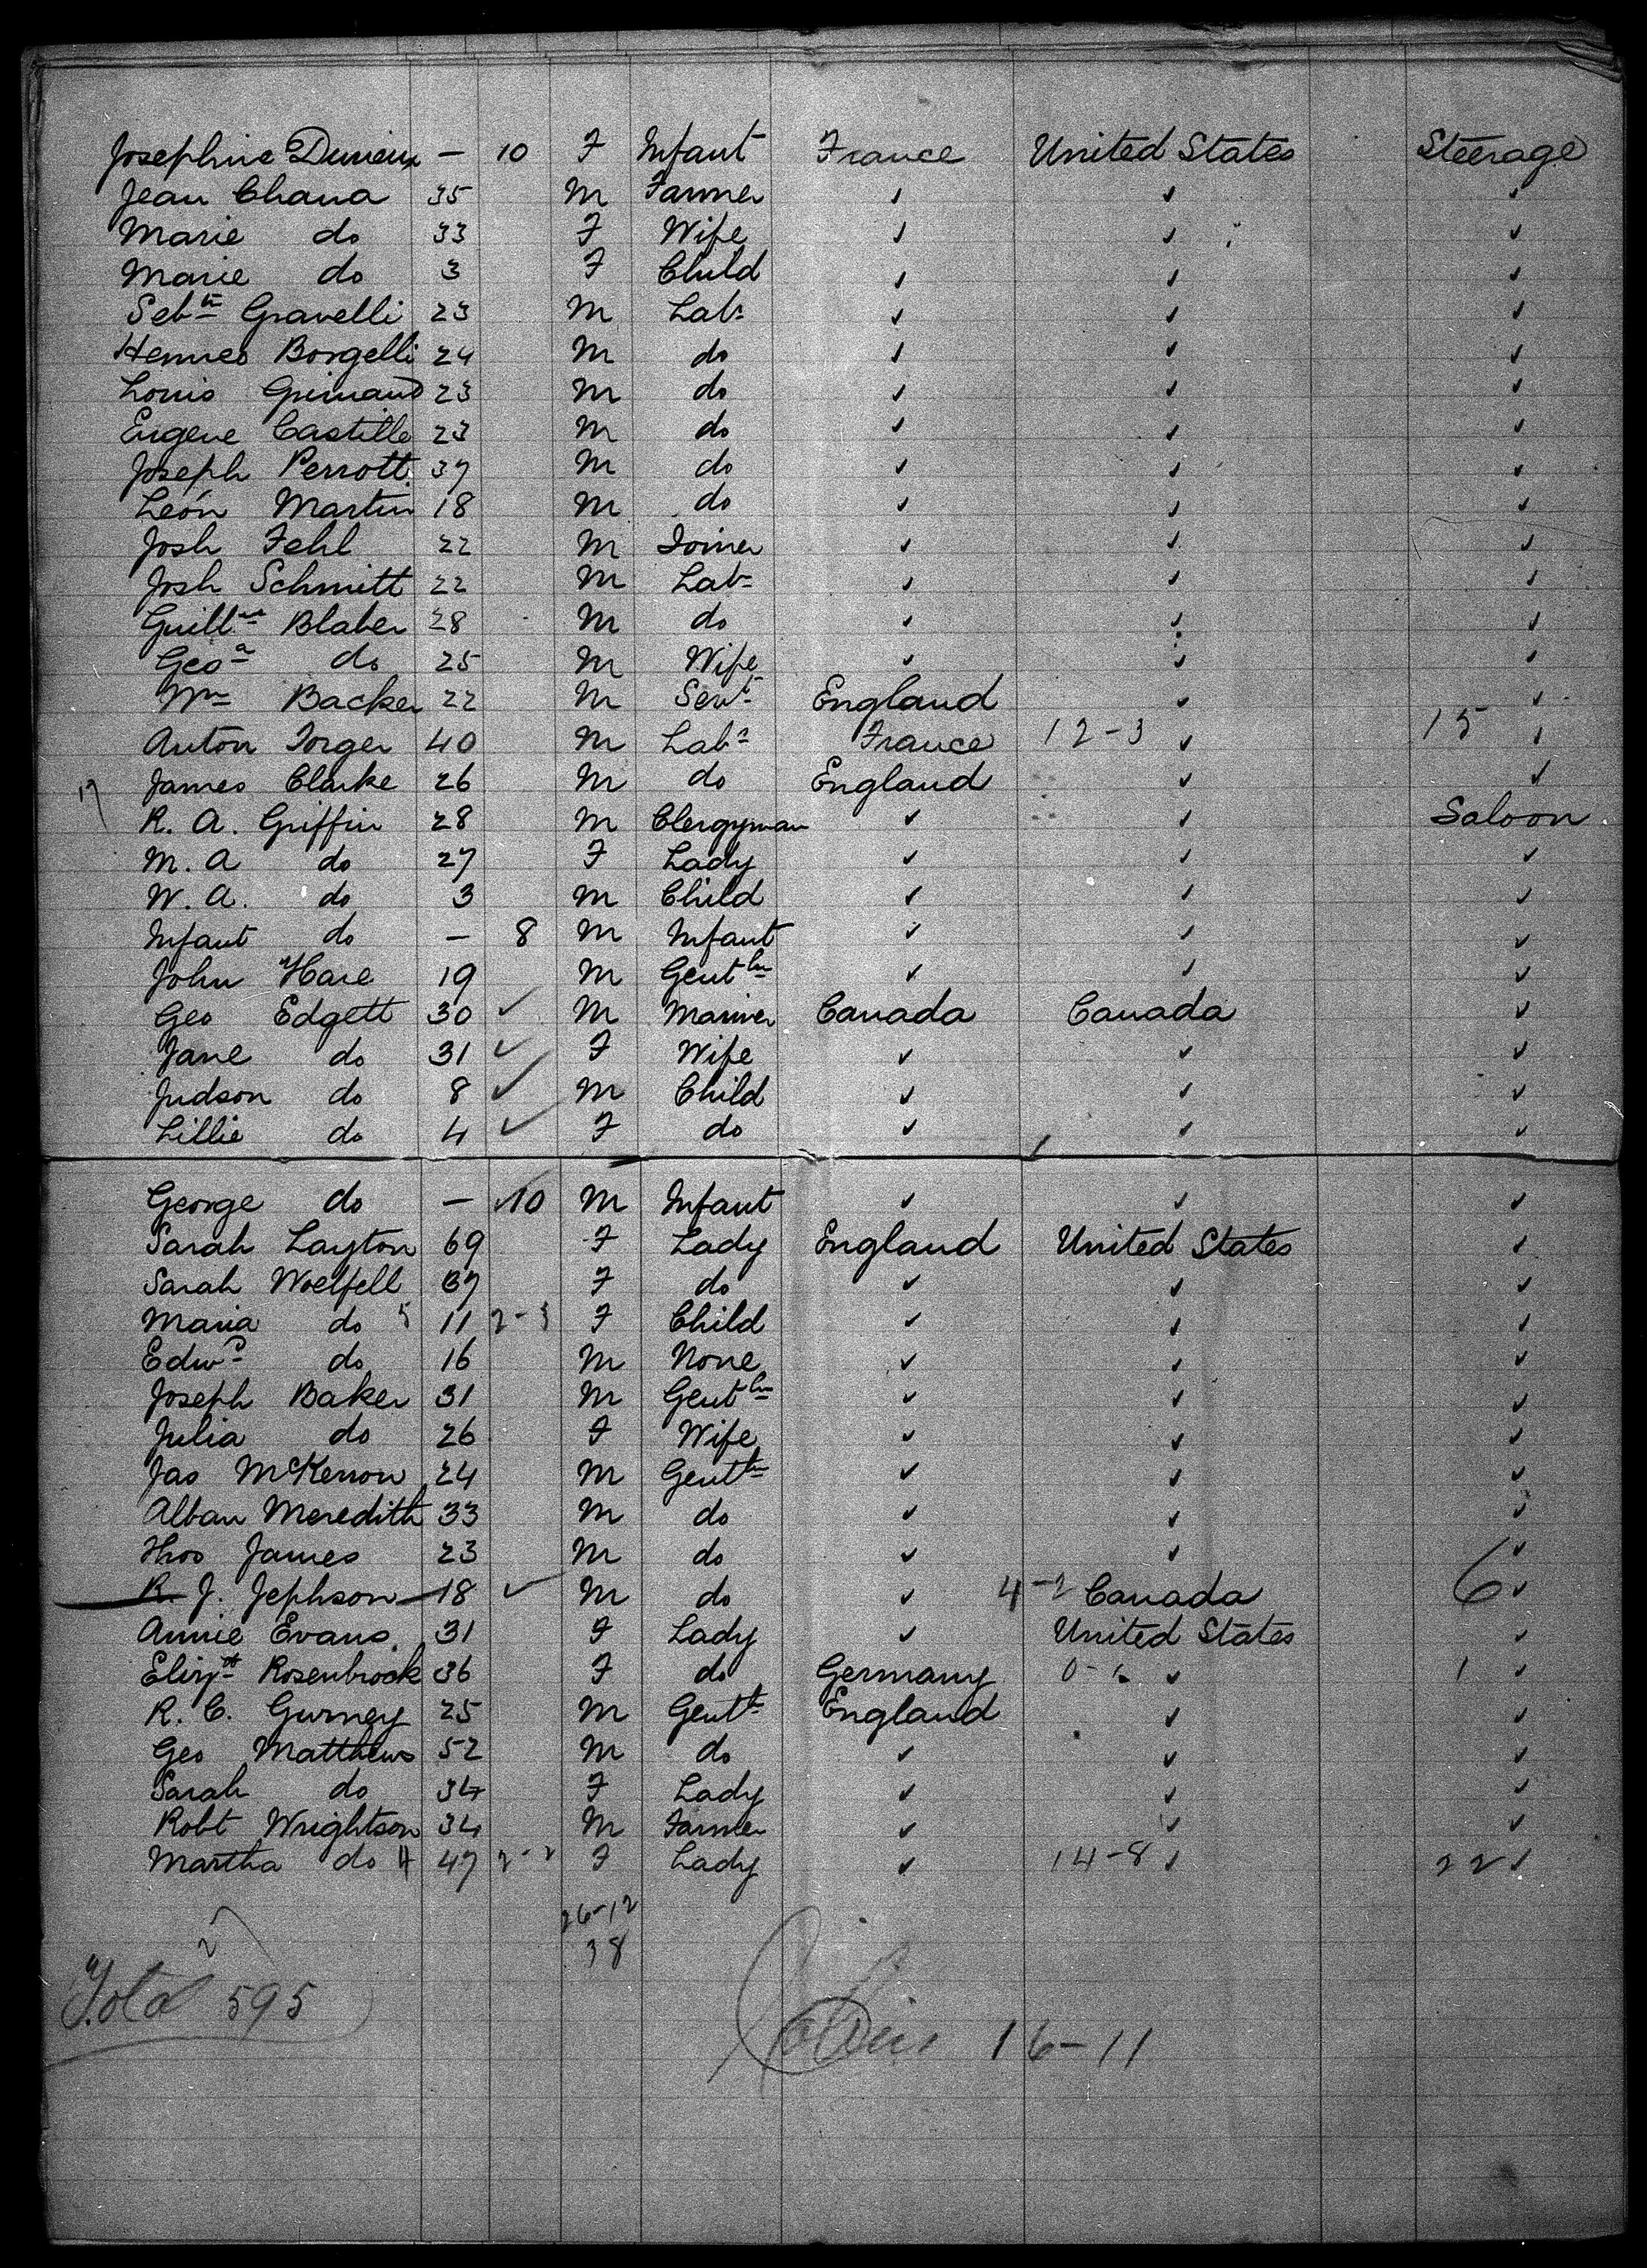 Josephine Durieux — 10 F Infant France United States Steerage
Jean Chana 35 M Farmer ✓ ✓ ✓
Marie do 33 F Wife ✓ ✓ ✓
Marie do 3 F Child ✓ ✓ ✓
Sebtn Gravelli 23 M Labr ✓ ✓ ✓
Borgelli 24 M do ✓ ✓ ✓
Louis Grimaud 23 M do ✓ ✓ ✓
Eugene Castille 23 M do ✓ ✓ ✓
Joseph Perrott 37 M do ✓ ✓ ✓
León Martin 18 M do ✓ ✓ ✓
Josh Fehl 22 M Joiner ✓ ✓ ✓
Josh Schmitt 22 M Labr ✓ ✓ ✓
Guillme Blaber 28 M do ✓ ✓ ✓
Geoa do 25 M Wife ✓ ✓ ✓
Wm Backer 22 M Servt England ✓ ✓
Anton Jorger 40 M Labr France 12-3 ✓ 15 ✓
17 James Clarke 26 M do England ✓ ✓
R. A. Griffin 28 M Clergyman ✓ ✓ Saloon
M. A do 27 F Lady ✓ ✓ ✓
W. A. do 3 M Child ✓ ✓ ✓
Infant do — 8 M Infant ✓ ✓ ✓
John Hare 19 M Gentln ✓ ✓ ✓
Geo Edgett 30 ✓ M Mariner Canada Canada ✓
Jane do 31 ✓ F Wife ✓ ✓ ✓
Judson do 8 ✓ M Child ✓ ✓ ✓
Lillie do 4 ✓ F do ✓ ✓ ✓
George do — ✓10 M Infant ✓ ✓ ✓
Sarah Layton 69 F Lady England United States ✓
Sarah Woelfell 37 F do ✓ ✓ ✓
Maria do 5 11 2-3 F Child ✓ ✓ ✓
Edwd do 16 M None ✓ ✓ ✓
Joseph Baker 31 M Gentln ✓ ✓ ✓
Julia do 26 F Wife ✓ ✓ ✓
Jas McKerron 24 M Gentln ✓ ✓ ✓
Alban Meredith 33 M do ✓ ✓ ✓
Thos James 23 M do ✓ ✓ ✓
R. J. Jephson 18 ✓ M do ✓ 4-2 Canada 6 ✓
Annie Evans 31 F Lady ✓ United States ✓
Elizth Rosenbrock 36 F do Germany ✓ 1 ✓
R. C. Gurney 25 M Gentn England ✓ ✓
Geo Matthews 52 M do ✓ ✓ ✓
Sarah do 34 F Lady ✓ ✓ ✓
Robt Wrightson 34 M Farmer ✓ ✓ ✓
Martha do 4 47 2-2 F Lady ✓ 14-8 ✓ 22 ✓
26-12
38
Total 595
16-11